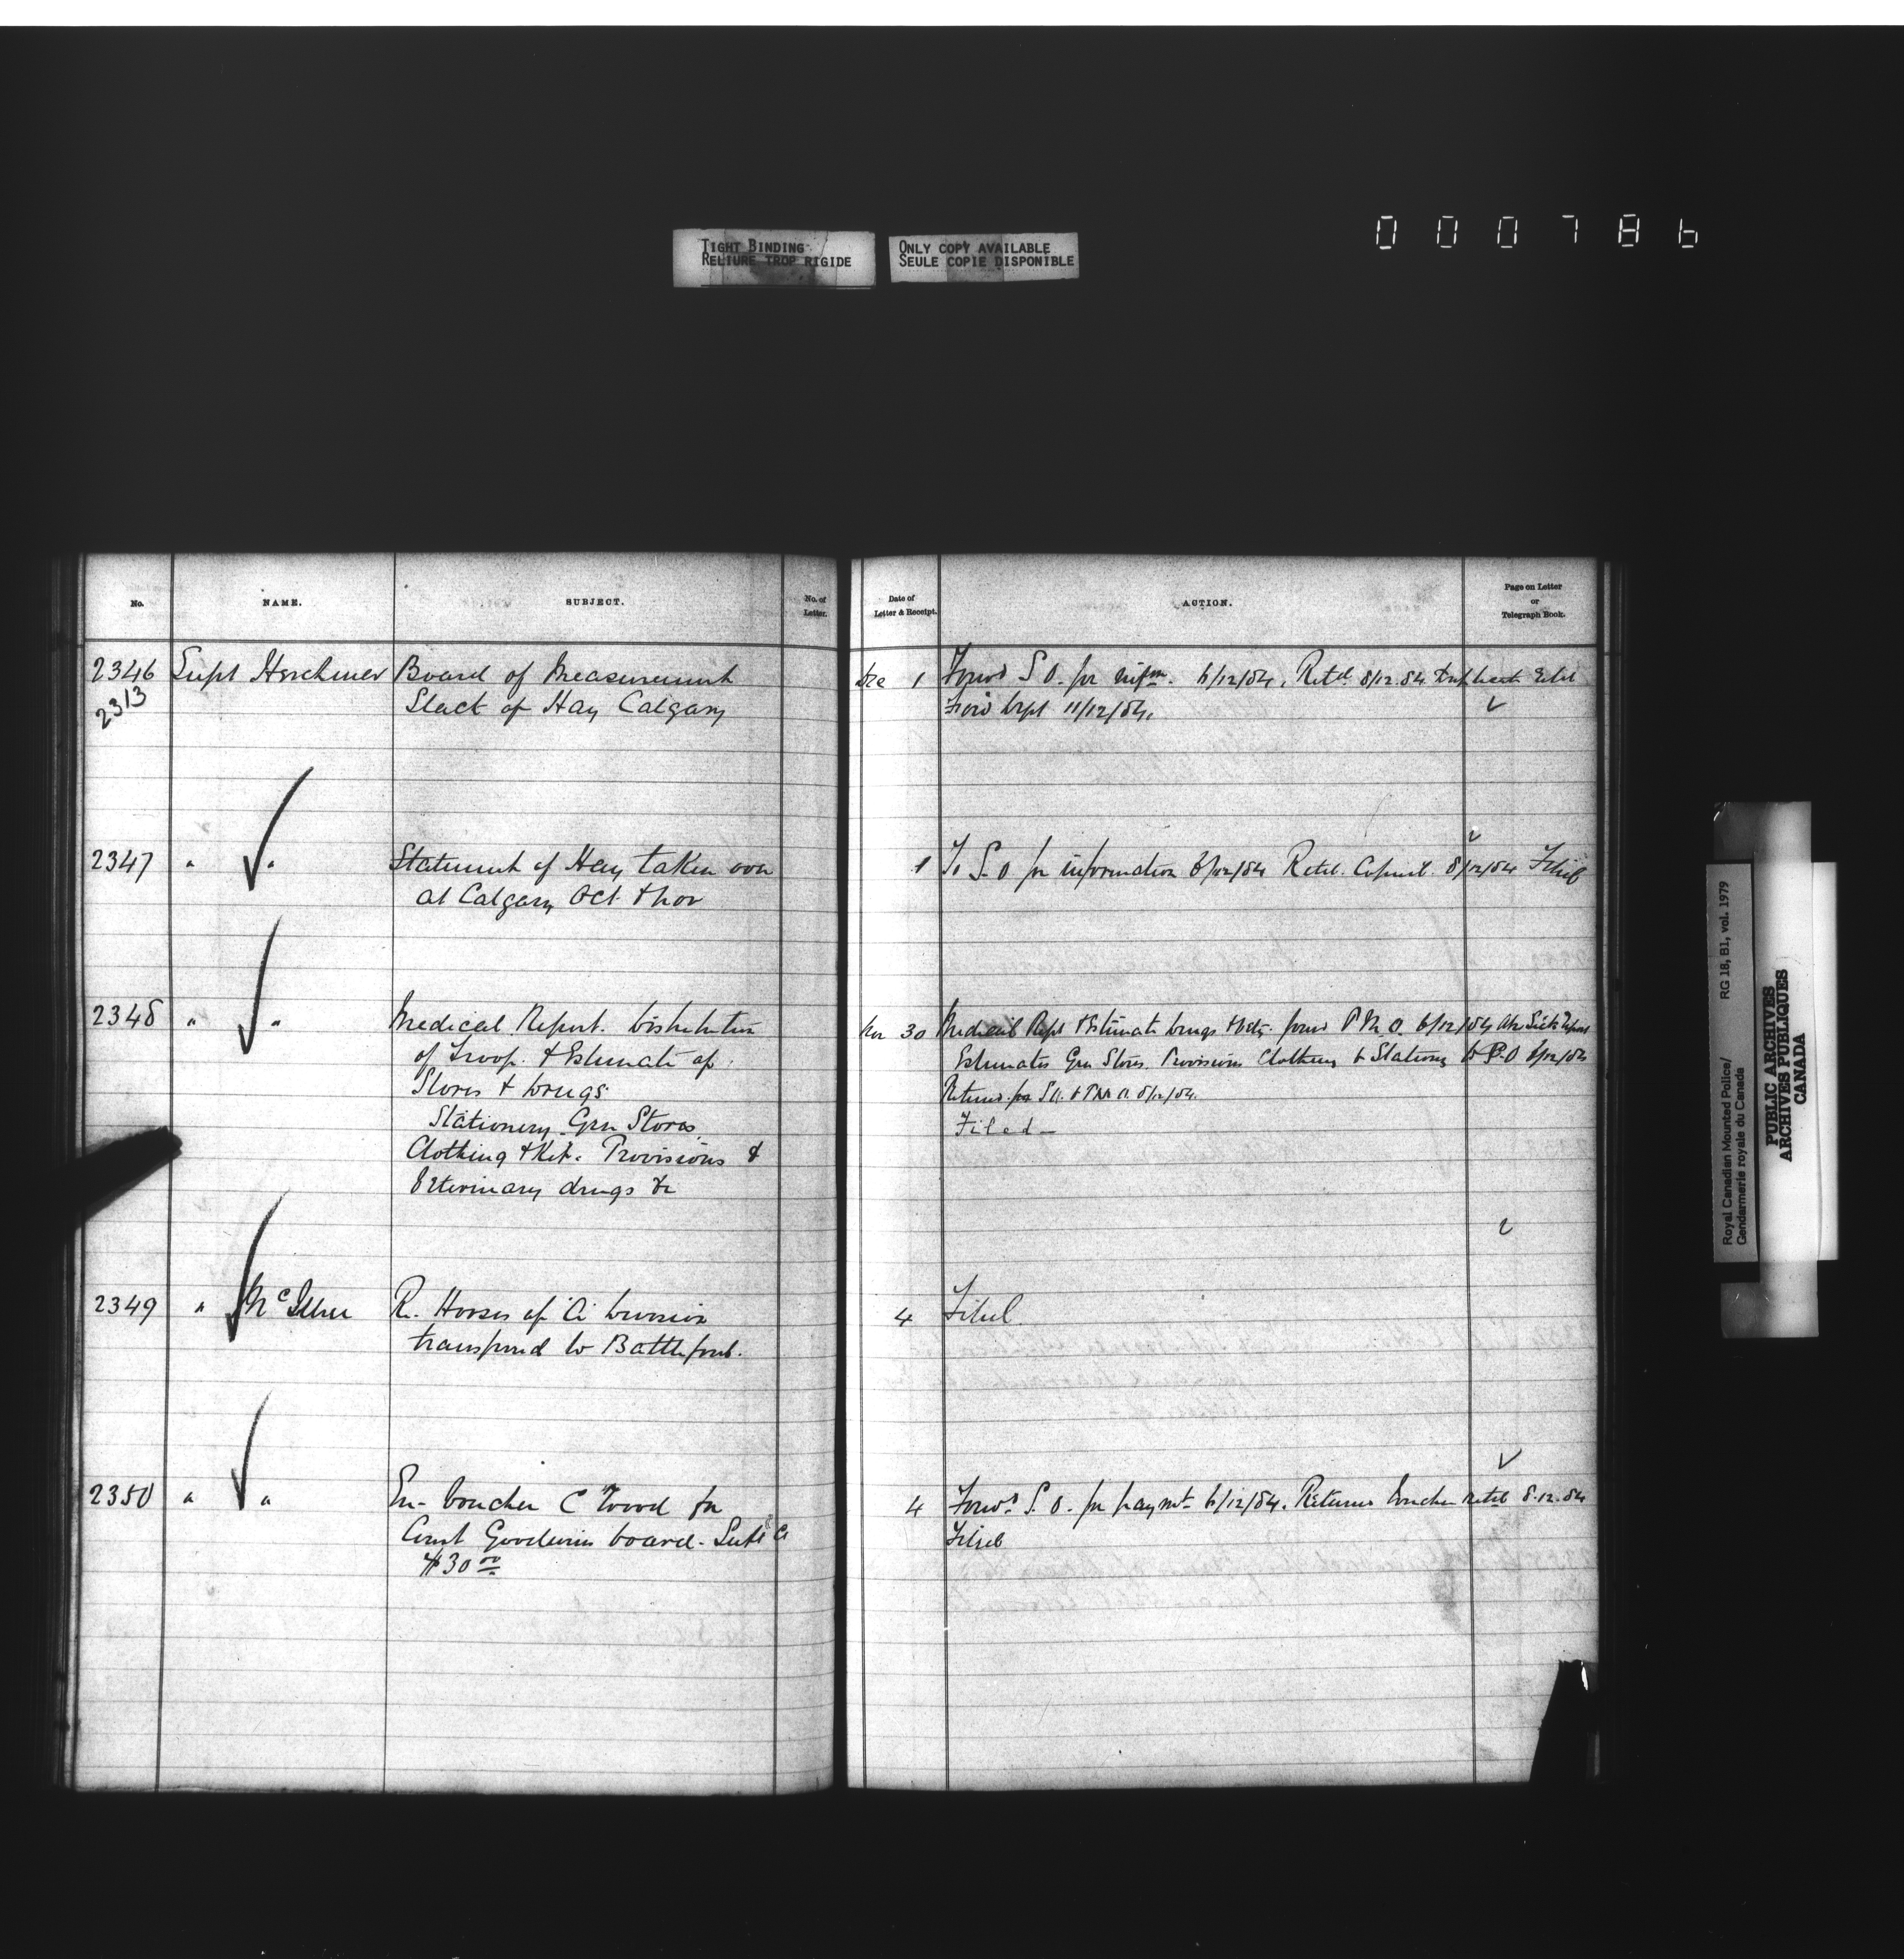 TIGHT BINDING
RELIURE TROP RIGIDE
ONLY COPY AVAILABLE
SEULE COPIE DISPONIBLE
000786
No.
NAME.
SUBJECT.
No. of
Letter.
Date of
Letter & Receipt.
ACTION.
Page on Letter
or
Telegraph Book.
2346 Supt Herchmer Board of Measurement
2313 Stack of Hay Calgary
Dec 1 Forwd S O. for infm. 6/12/84. Retd 8/12.84 Duplicate Filed
Forwd Dept 11/12/84.
2347 " " Statement of Hay taken over
at Calgary Oct & Nov
1 To S.O for information 6/12/84 Retd. 8/12/84 Filed
2348 " " Medical Report. Distribution
of Troop. & Estimate of
Stores & Drugs
Stationery Gen Stores
Clothing & Kit. Provisions &
Veterinary drugs &c
Nov 30 Medical Rept & Estimate Drugs forwd P M O. 6/12/84 Sick Report
Estimates Gen Stores. Provisions Clothing & Stationy to S.O 6/12/84
Returned S O. & P M O. 8/12/84.
Filed -
2349 " McIllree R. Horses of 'A' Division
transferred to Battleford.
4 Filed
2350 " " En- Voucher C Wood for
Const Goodwins board- Sept
$30 00
4 Forwd S. O. for paymt 6/12/84. Returned Voucher retd 8.12.84
Filed
Royal Canadian Mounted Police/ RG 18, B1, vol. 1979
Gendarmerie royale du Canada
PUBLIC ARCHIVES
ARCHIVES PUBLIQUES
CANADA